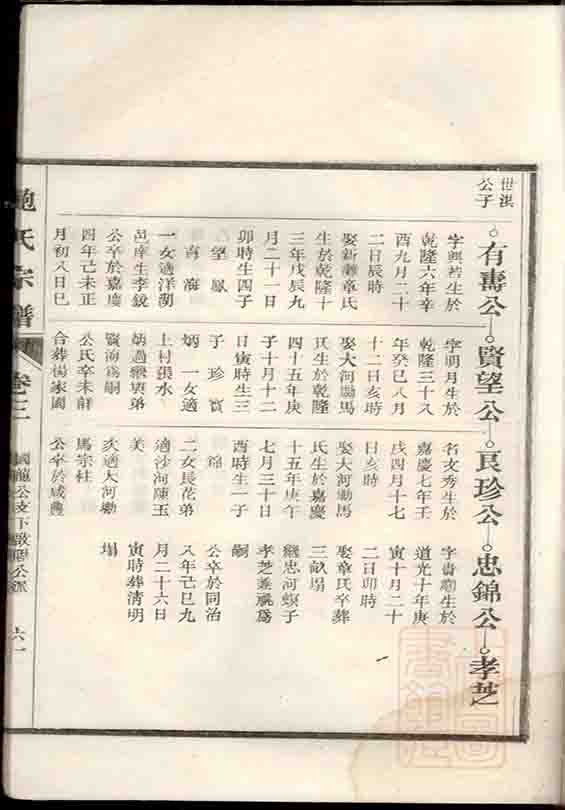 世淇
公子
有壽公 賢望公 良珍公 忠錦公 孝芝
字興若生於
乾隆六年辛
酉九月二十
二日辰時
娶新 章氏
生於乾隆十
三年戊辰九
月二十一日
卯時生四子
望鳳
海
一女適洋荫
邑庠生李鏡
公卒於嘉慶
四年己未正
月初八日巳
字明月生於
乾隆三十八
年癸巳八月
十二日亥時
娶大河 馬
氏生於乾隆
四十五年庚
子十月十二
日寅時生三
子 珍 寶
炳 一女適
上村張水
炳過繼 弟
賢海為嗣
公氏卒未 
合葬楊家園
名文秀生於
嘉慶七年壬
戌四月十七
日亥時
娶大河 馬
氏生於嘉慶
十五年庚午
七月三十日
酉時生一子
錦
二女長花弟
適沙河陳玉
美
次適大河 
馬宗柱
公卒於咸豐
字 生於
道光十年庚
寅十月二十
二日卯時
娶章氏卒葬
三畝塌
繼忠河 子
孝芝 為
嗣
公卒於同治
八年己巳九
月二十六日
寅時葬清明
塌
鮑氏宗譜
卷三
國龍公支下 公派
六一